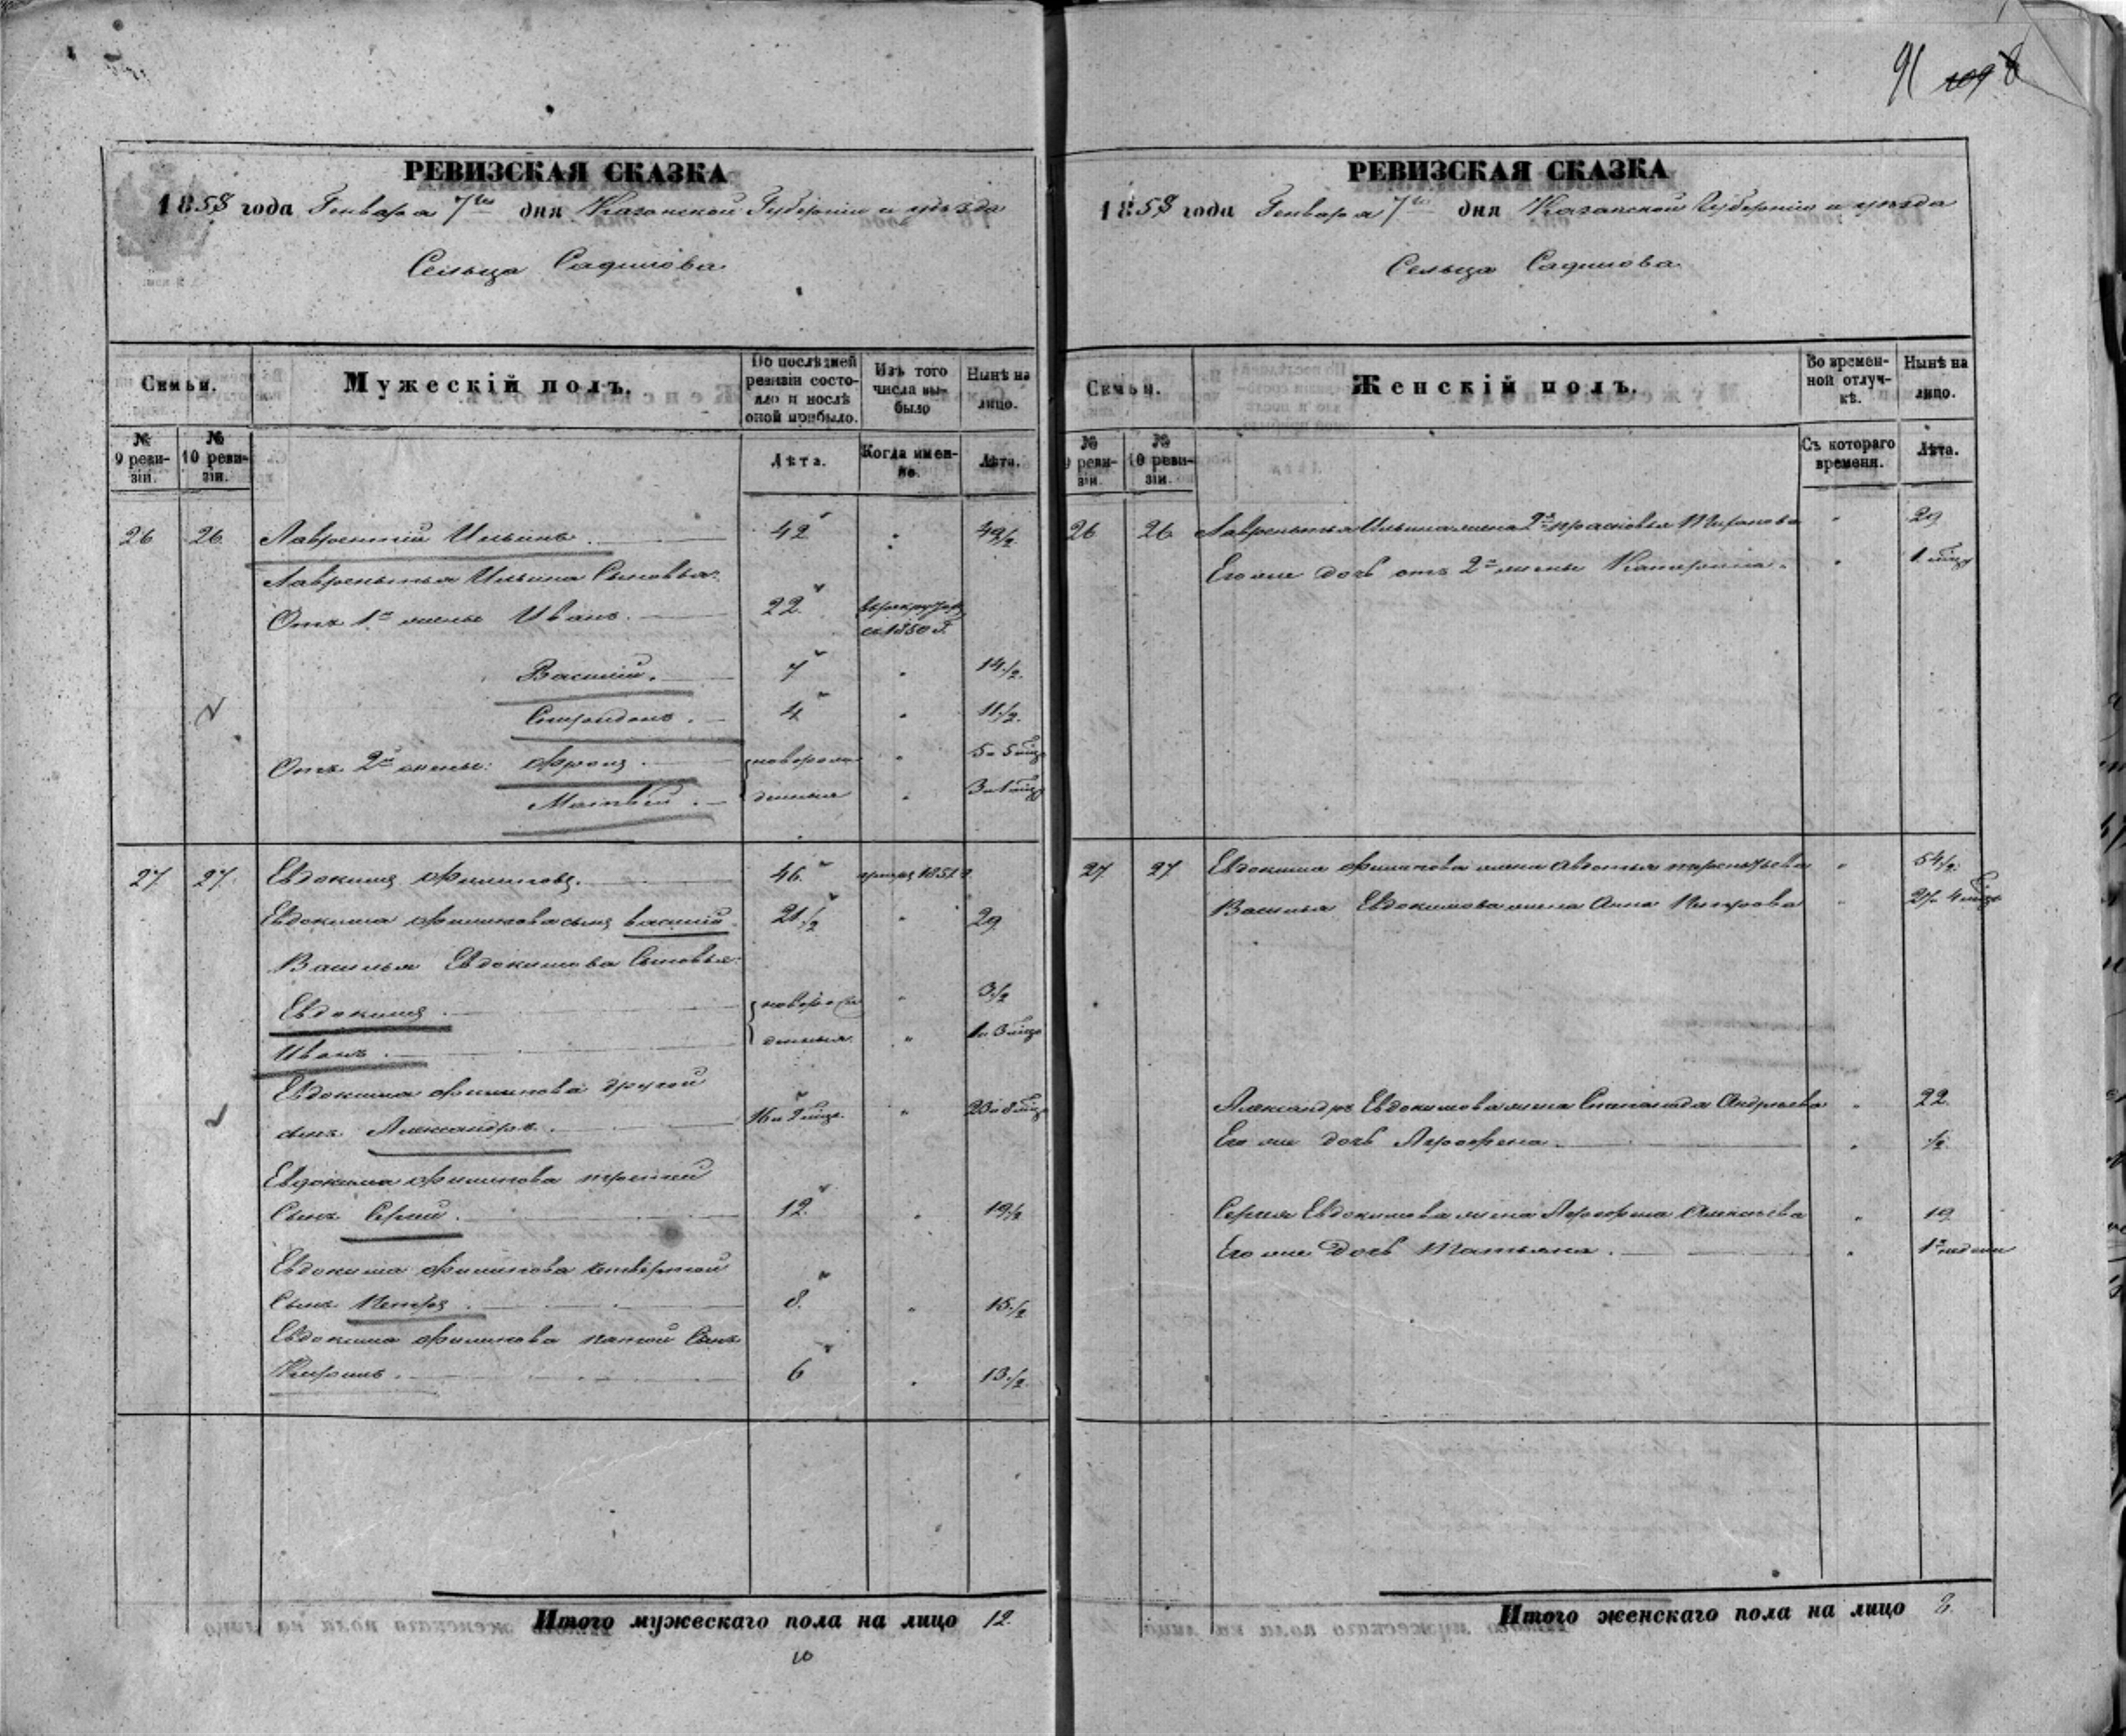 91 109 8
РЕВИЗСКАЯ СКАЗКА
1858 года Генваря 7го дня Казанской Губернии и уезда
Сельца
Семьи.
Мужескій полъ.
По послѣдней ревизіи состояло и послѣ оной прибыло.
Изъ того числа выбыло
Нынѣ на лицо.
№ 9 ревизіи.
№ 10 ревизіи.
Лѣта.
Когда именно.
Лѣта.
26 26 Лаврентій Ильинъ. 42 49 1/2
Лаврентья Ильина Сыновья:
Отъ 1й жены Иванъ. 22 въ рекрутах съ 1850 г.
Василій. 7 14 1/2
Спиридонъ. 4 11 1/2
Отъ 2й жены: 5 и 5 мцв
Матвей. 3 и 1 мцв
новорожденныя
27 27 Евдокимъ Филиповъ. 46 1851 г.
Евдокима Филипова сынъ василій. 21 1/2 29
Василья Евдокимова Сыновья:
Евдокимъ. новорож 3 1/2
Иванъ. денныя 1 и 3 мцв
Евдокима Филипова другой
сынъ Александръ. 16 и 2 мцв. 23 и 8 мцв
Евдокима Филипова третей
Сынъ Сергей. 12 19 1/2
Евдокима Филипова четвертой
Сынъ Петръ. 8 15 1/2
Евдокима Филипова пятой Сынъ
6 13 1/2
Итого мужескаго пола на лицо 12.
10
РЕВИЗСКАЯ СКАЗКА
1858 года Генваря 7го дня Казанской Губернии и уезда
Сельца
Семьи.
Женскій полъ.
Во временной отлучкѣ.
Нынѣ на лицо.
№ 9 ревизіи.
№ 10 ревизіи.
Съ котораго времени.
Лѣта.
26 26 Лаврентья Ильина жена 2я прасковья 29
Его же дочь отъ 2й жены Катерина. 1 мцъ
27 27 Евдокима Филипова жена Авдотья 54 1/2
Василья Евдокимова жена Анна Петрова 27 и 4 мцв
Александра Евдокимова жена Степанида Андреева 22
Его же дочь Аграфена. 1/2
Сергея Евдокимова жена Аграфена Алексеева 19
Его же дочь Татьяна. 1 недели
Итого женскаго пола на лицо 8.